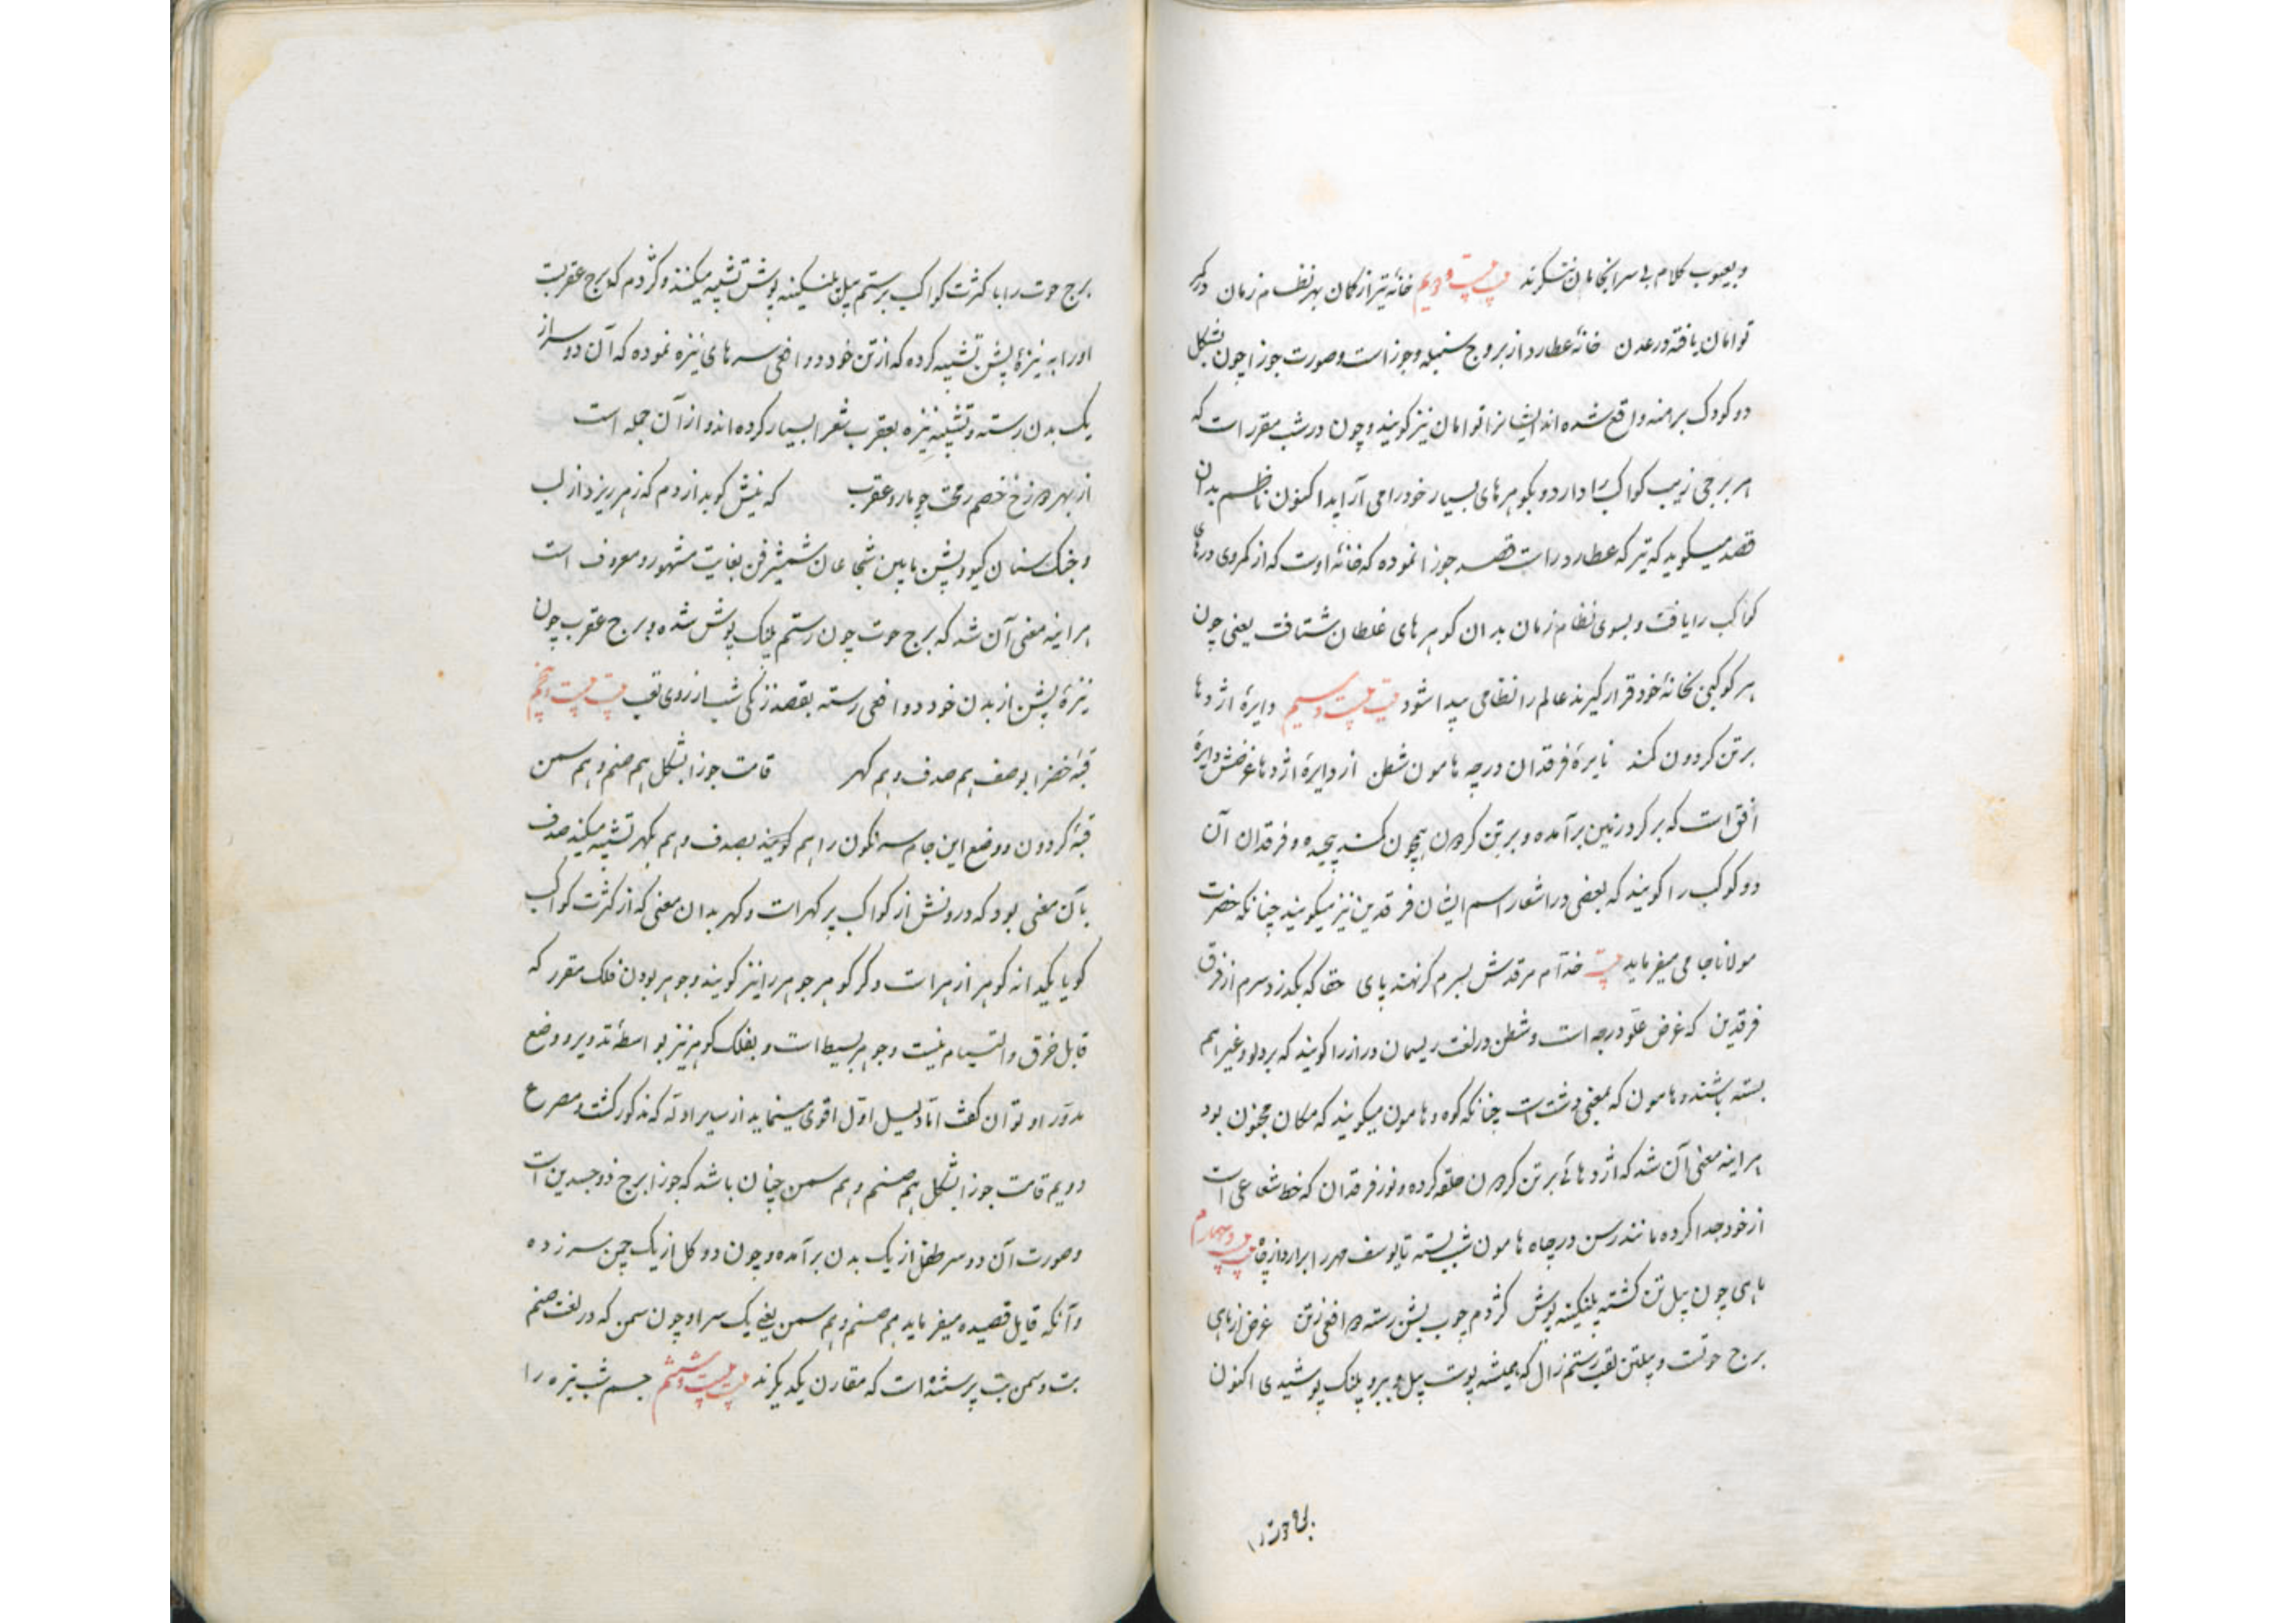 و بعیوب کلام بی سرانجامان ننگرند بیت بیست و دویم خانهٔ تیر از کمان بهر نظام زمان در کمر
توامان یافته در عدن خانهٔ عطارد از بروج سنبله و جوزاست و صورت جوزا چون بشکل
دو کودک برهنه واقع شده اند ایشانرا توامان نیز کویند و چون در شب مقرر است که
هر برجی زیب کواکب را دارد و بکوهرهای بسیار خود را می آراید اکنون ناظم بدان
قصد میکوید که تیر که عطارد راست قصد جوزا نموده که خانهٔ اوست که از کمر وی درهای
کواکب را یافت و بسوی نظام زمان بدان کوهرهای غلطان شتافت یعنی چون
هر کوکبی بخانهٔ خود قرار گیرند عالم را نظامی پیدا شود بیت بیست و سیم دایرهٔ اژدها
بر تن کردون کمند نایرهٔ فرقدان در چه هامون شطن از دایرهٔ اژدها غرضش دایرهٔ
افق است که بر کرد زمین برآمده و بر تن کردون همچون کمند پیچیده و فرقدان آن
دو کوکب را کویند که بعضی در اشعار اسم ایشان فرقدین نیز میکویند چنانکه حضرت
مولانا جامی میفرماید بیت خدّام مرقدش بسرم کر نهند پای حقا که بکذرد سرم از فرق
فرقدین که غرض علوّ درجه است و شطن در لغت ریسمان دراز را کویند که بر دلو و غیراهم
بسته باشند و هامون که بمعنی دشت است چنانکه کوه و هامون میکویند که مکان مجنون بود
هراینه معنی آن شد که اژدهائی بر تن کردون حلقه کرده و نور فرقدان که خط شعاعی است
از خود جدا کرده مانند رسن در چاه هامون شب بسته تا یوسف مهر را برآرد از چاه بیت بیست و چهارم
ماهی چون پیل تن کشته پلنکینه پوش کژدم چوب پشن رسته دو افعی ز تن غرض از ماهی
برج حوتست و پیلتن لقب رستم زال که همیشه پوست پیل و ببر و پلنک پوشیدی اکنون
برج حوت را
برج حوت را با کثرت کواکب برستم پیلتن پلنکینه پوش تشبیه میکنند و کژدم که برج عقربست
او را به نیزهٔ پشن تشبیه کرده که از تن خود دو افعی سرهای نیزه نموده که آن دو سر از
یک بدن رسته و تشبیه نیزه بعقرب شعرا بسیار کرده اند و از آن جمله است
از بهر درزخ خصم رمحت چو مار و عقرب که نیش کوبد از دم که زهر ریزد از لب
و جنک سنان کیو و پشن مابین شجاعان شمشیرزن بغایت مشهور و معروف است
هراینه معنی آن شد که برج حوت چون رستم پلنک پوش شده و برج عقرب چون
نیزهٔ پشن از بدن خود دو افعی رسته بقصد زنکی شب از روی تعب بیت بیست و پنجم
قبهٔ خضرا بوصف هم صدف و هم کهر قامت جوزا بشکل هم صنم و هم سمن
قبهٔ کردون و وضع این جام سرنکون را هم کویند بصدف و هم بکهر تشبیه میکنند صدف
بآن معنی بود که درونش از کواکب پر کهر است و کهر بدان معنی که از کثرت کواکب
کویا یکدانه کوهر از هر است و کر کوهر جوهر را نیز کویند و جوهر بودن فلک مقرر که
قابل خرق و التیام نیست و جوهر بسیط است و بفلک کوهر نیز بواسطهٔ تدویر و وضع
مدوّر او توان کفت امّا دلیل اوّل اقوی مینماید از سایر ادلّه که مذکور کشت و مصرع
دویم قامت جوزا بشکل هم صنم و هم سمن چنان باشد که جوزا برج ذوجسدین است
و صورت آن دو سر طفل از یک بدن برآمده و چون دو کل از یک چمن سر زده
و آنکه قایل قصیده میفرماید هم صنم و هم سمن یعنی یک سر او چون سمن که در لغت صنم
بت و سمن بت پرستنده است که مقارن یکدیکرند بیت بیست و ششم جسم شب تیره را